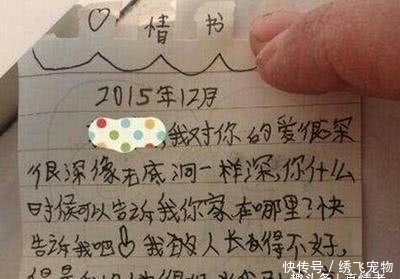 情书
2015年12月
,我对你的爱很深
很深像无底洞一样深,你什么
时候可以告诉我你家在哪里?快
告诉我吧 我本人长得不好,
快传号/绣飞宠物